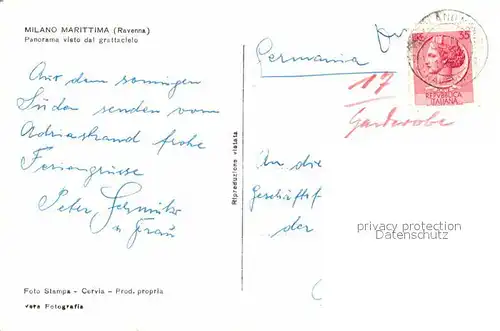 MILANO MARITTIMA (Ravenna)
Panorama visto dal grattacielo
Aus dem sonnigen
Süden senden vom
Adriastrand frohe
Feriengrüsse
Peter
u Frau
Foto Stampa - Cervia - Prod. propria
vera Fotografia
Riproduzione vietata
Germania
35
REPVBBLICA
ITALIANA
17
Garderobe
An die
Geschäftsf
der
privacy protection
Datenschutz